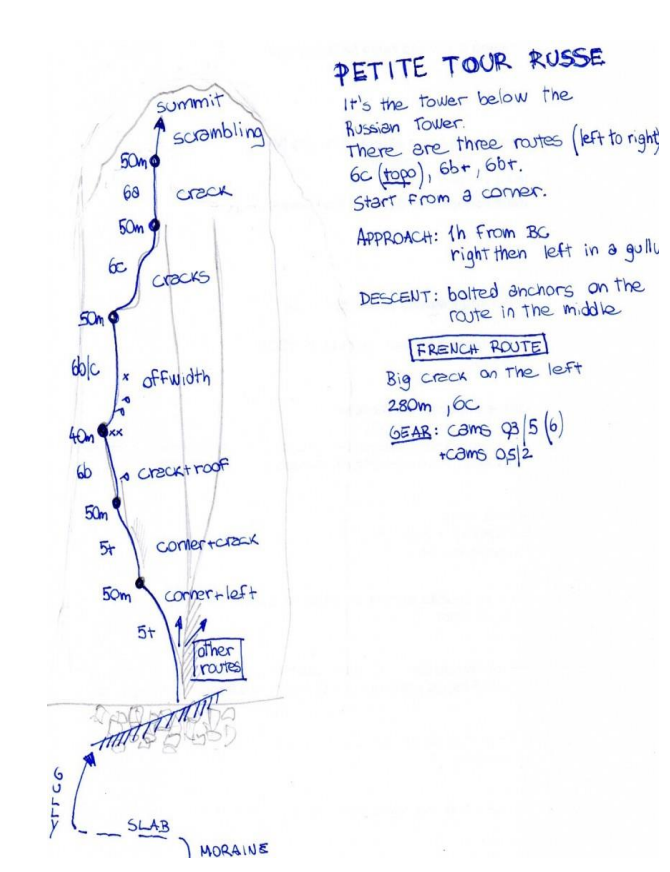 PETITE TOUR RUSSE
It's the tower below the
Russian Tower.
There are three routes (left to right)
6c (topo), 6b+, 6b+.
Start from a corner.
APPROACH: 1h from BC
right then left in a gully
DESCENT: bolted anchors on the
route in the middle
FRENCH ROUTE
Big crack on the left
280m, 6c
GEAR: cams 0,3/5 (6)
+cams 0,5/2
summit
scrambling
50m
6a
crack
50m
6c
cracks
50m
6b/c
x offwidth
40m xx
6b
crack+roof
50m
5+
corner+crack
50m
corner+left
5+
other
routes
GULLY
SLAB
MORAINE